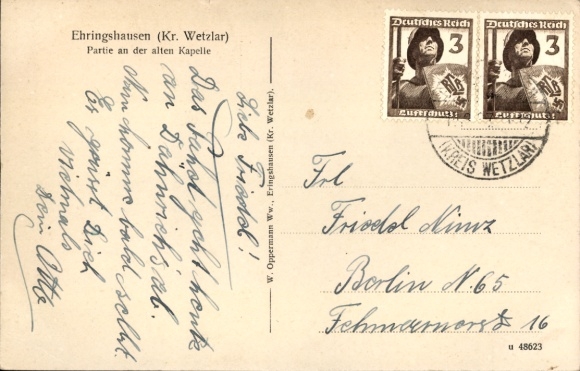 Ehringshausen (Kr. Wetzlar)
Partie an der alten Kapelle
Liebe Friedel!
Das Paket geht heute
an Dähnrich's ab.
Nun komme bald selbst.
Es grüßt Dich
vielmals
Dein Otto
W. Oppermann Ww., Eringshausen (Kr. Wetzlar).
Deutsches Reich
3
RLB
Luftschutz
Deutsches Reich
3
RLB
Luftschutz
(KREIS WETZLAR)
Frl
Friedel
Berlin N. 65
16
u 48623